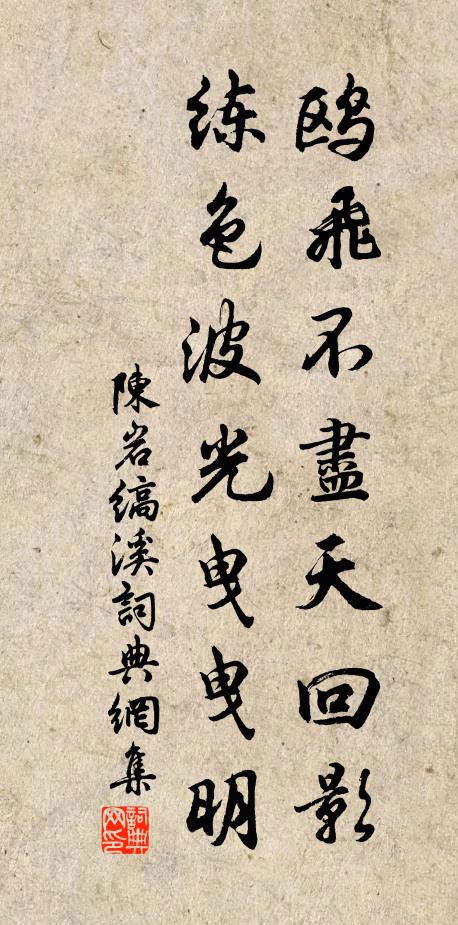 鸥飛不盡天回影
练色波光曳曳明
陳岩缟溪詞典網集
詞典
网印